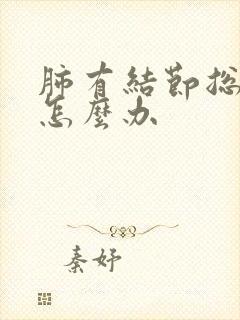 肺有結節总
怎麼办
秦妤